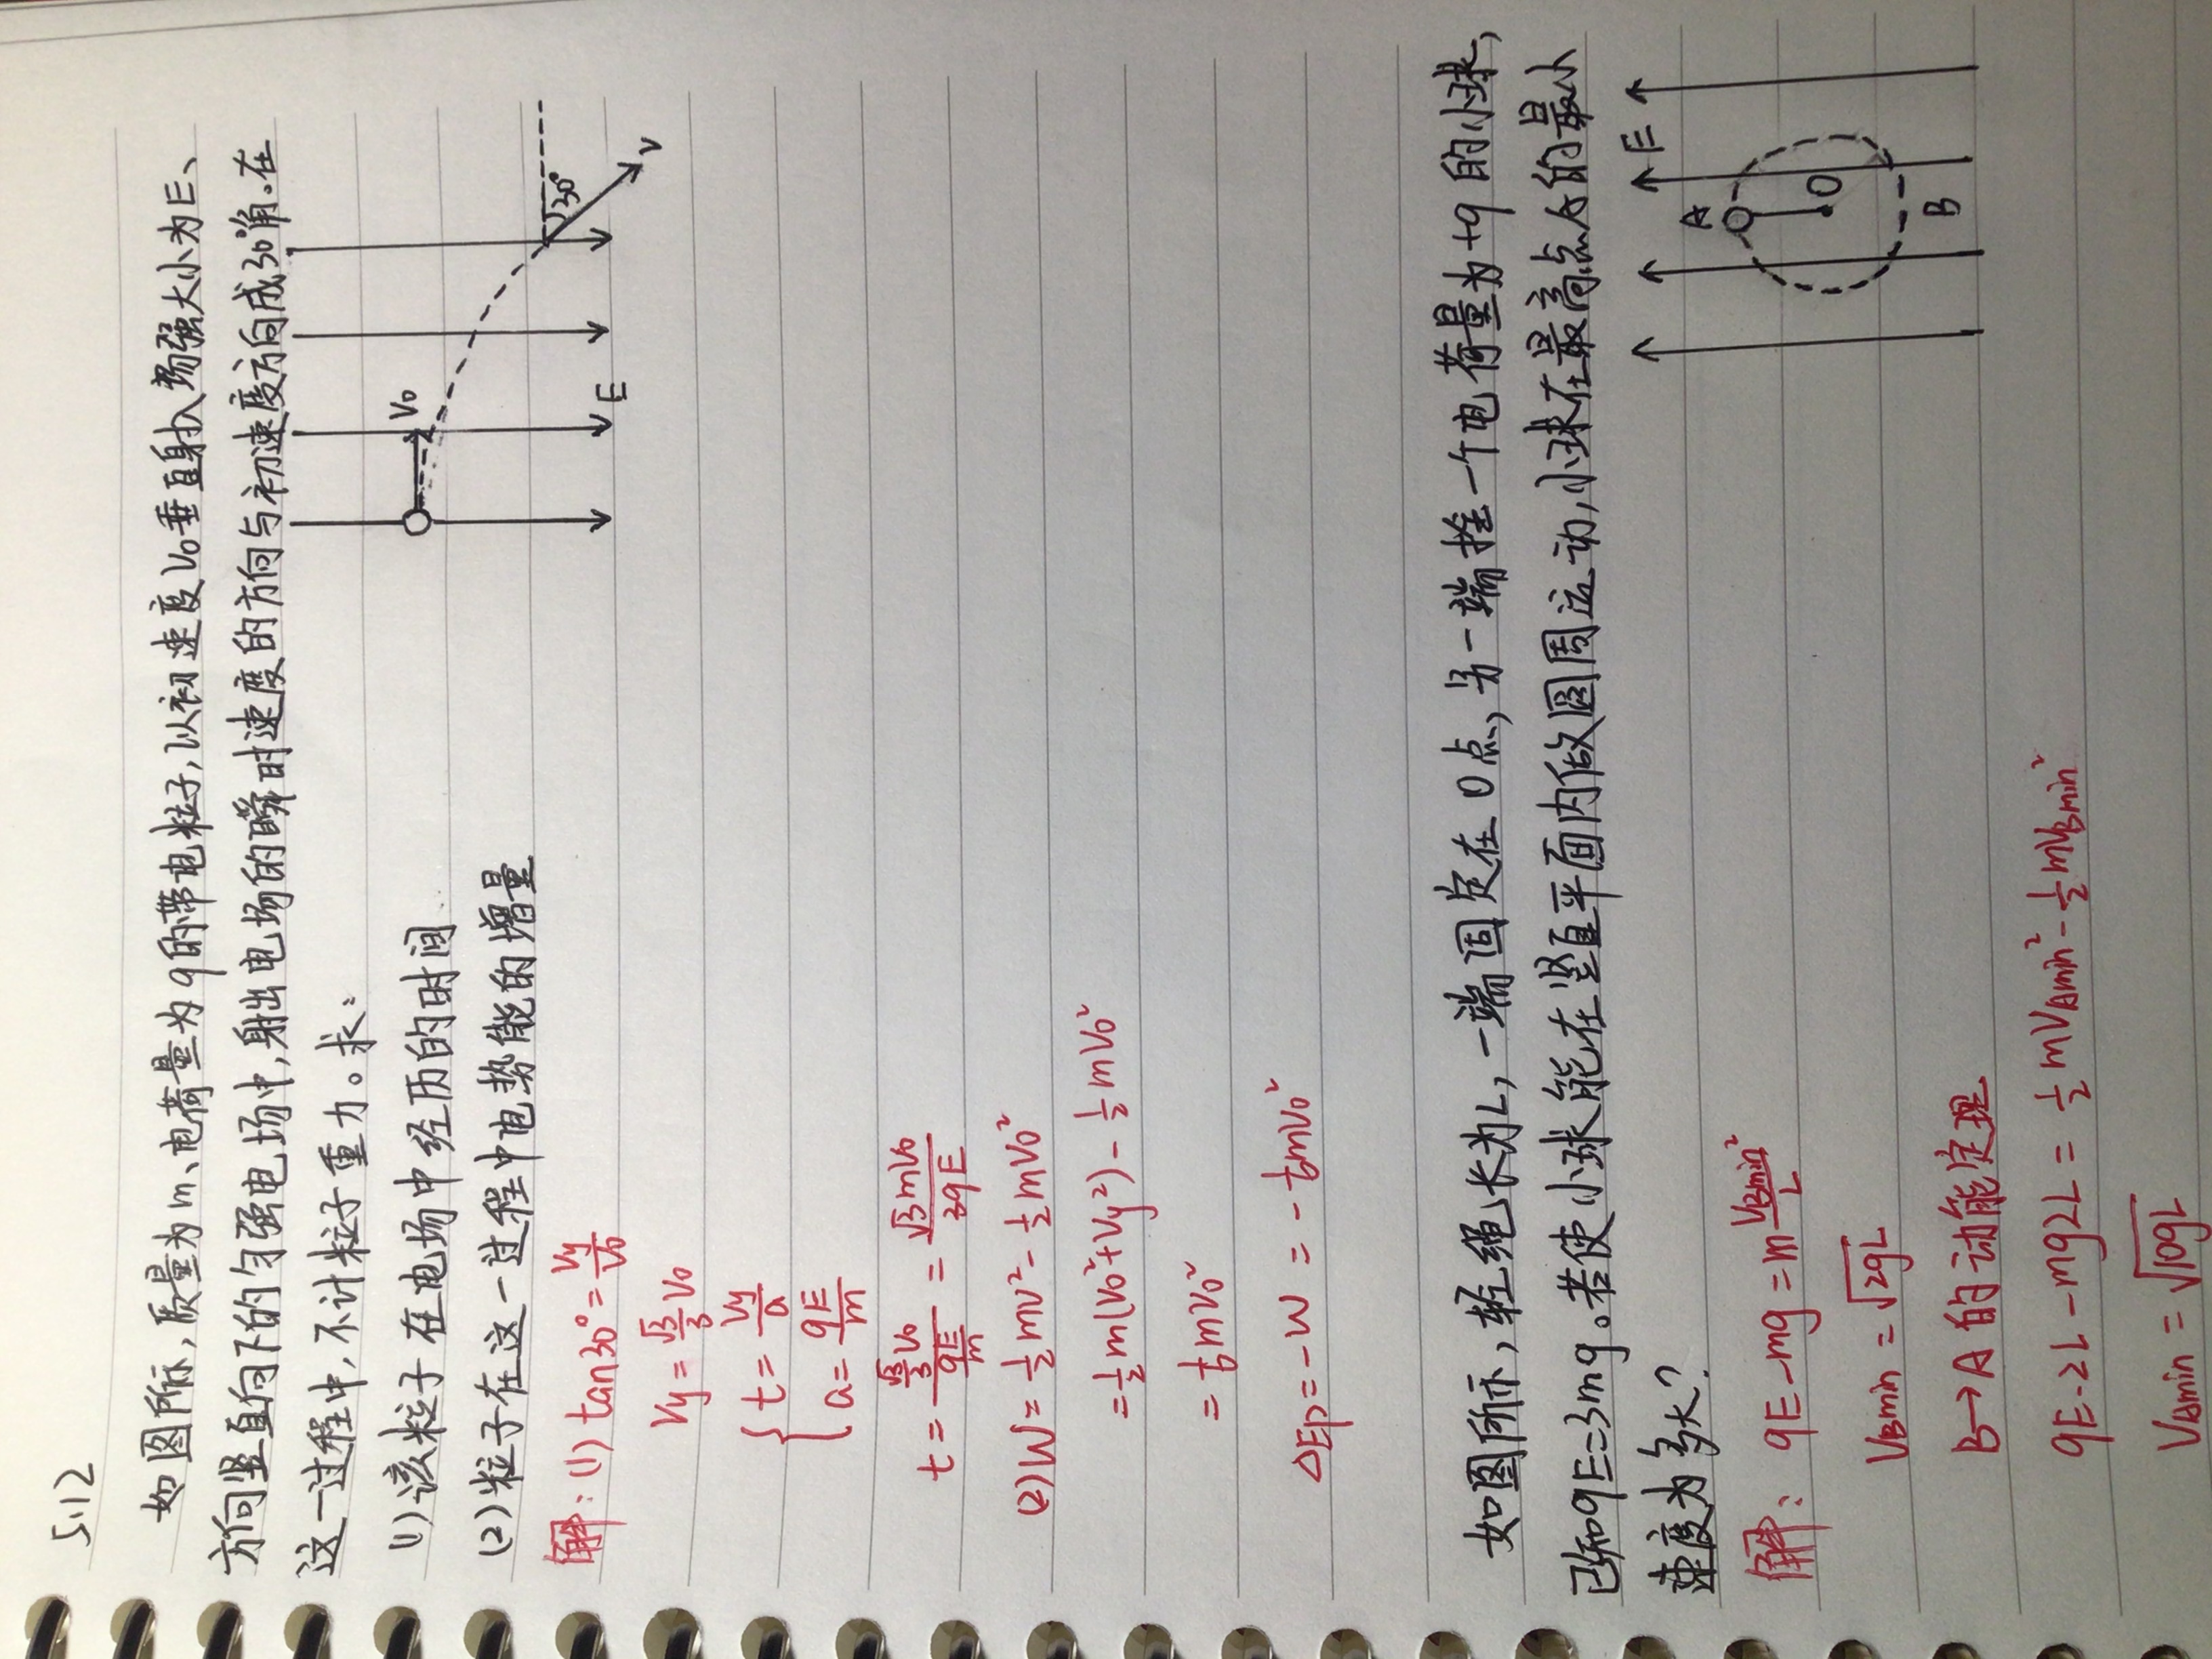 5.12
如图所示,质量为m、电荷量为q的带电粒子,以初速度V₀垂直射入场强大小为E、
方向竖直向下的匀强电场中,射出电场的瞬时速度的方向与初速度方向成30°角。在
这一过程中,不计粒子重力。求:
(1)该粒子在电场中经历的时间
(2)粒子在这一过程中电势能的增量
V₀
30°
E
V
解:(1) tan30°=Vy/V₀
Vy=√3/3 V₀
{ t=Vy/a
a=qE/m
t=(√3/3 V₀)/(qE/m)=√3mV₀/3qE
(2)W=1/2mv²-1/2mV₀²
=1/2m(V₀²+Vy²)-1/2mV₀²
=1/6mV₀²
△Ep=-W=-1/6mV₀²
如图所示,轻绳长为L,一端固定在O点,另一端拴一个电荷量为+q的小球,
已知qE=3mg。若使小球能在竖直平面内做圆周运动,小球在最高点A的最小
速度为多大?
E
A
O
B
解: qE-mg=m VBmin²/L
VBmin=√2gL
B→A的动能定理
qE·2L-mg2L=1/2mVAmin²-1/2mVBmin²
VAmin=√10gL